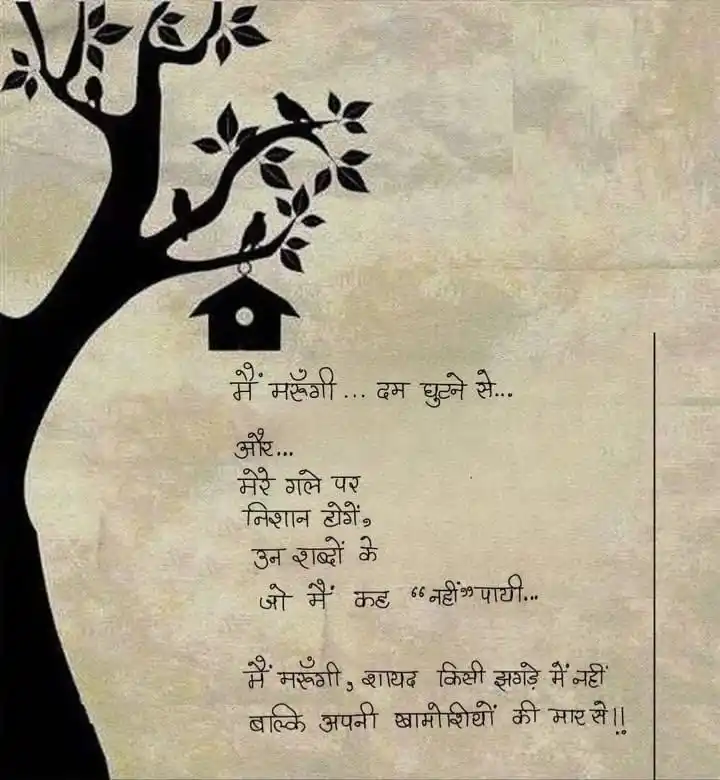 मैं मरूँगी... दम घुटने से...
और...
मेरे गले पर
निशान होगें,
उन शब्दों के
जो मैं कह “नहीं” पायी...
मैं मरूँगी, शायद किसी झगड़े में नहीं
बाल्कि अपनी खामोशियों की मार से!!